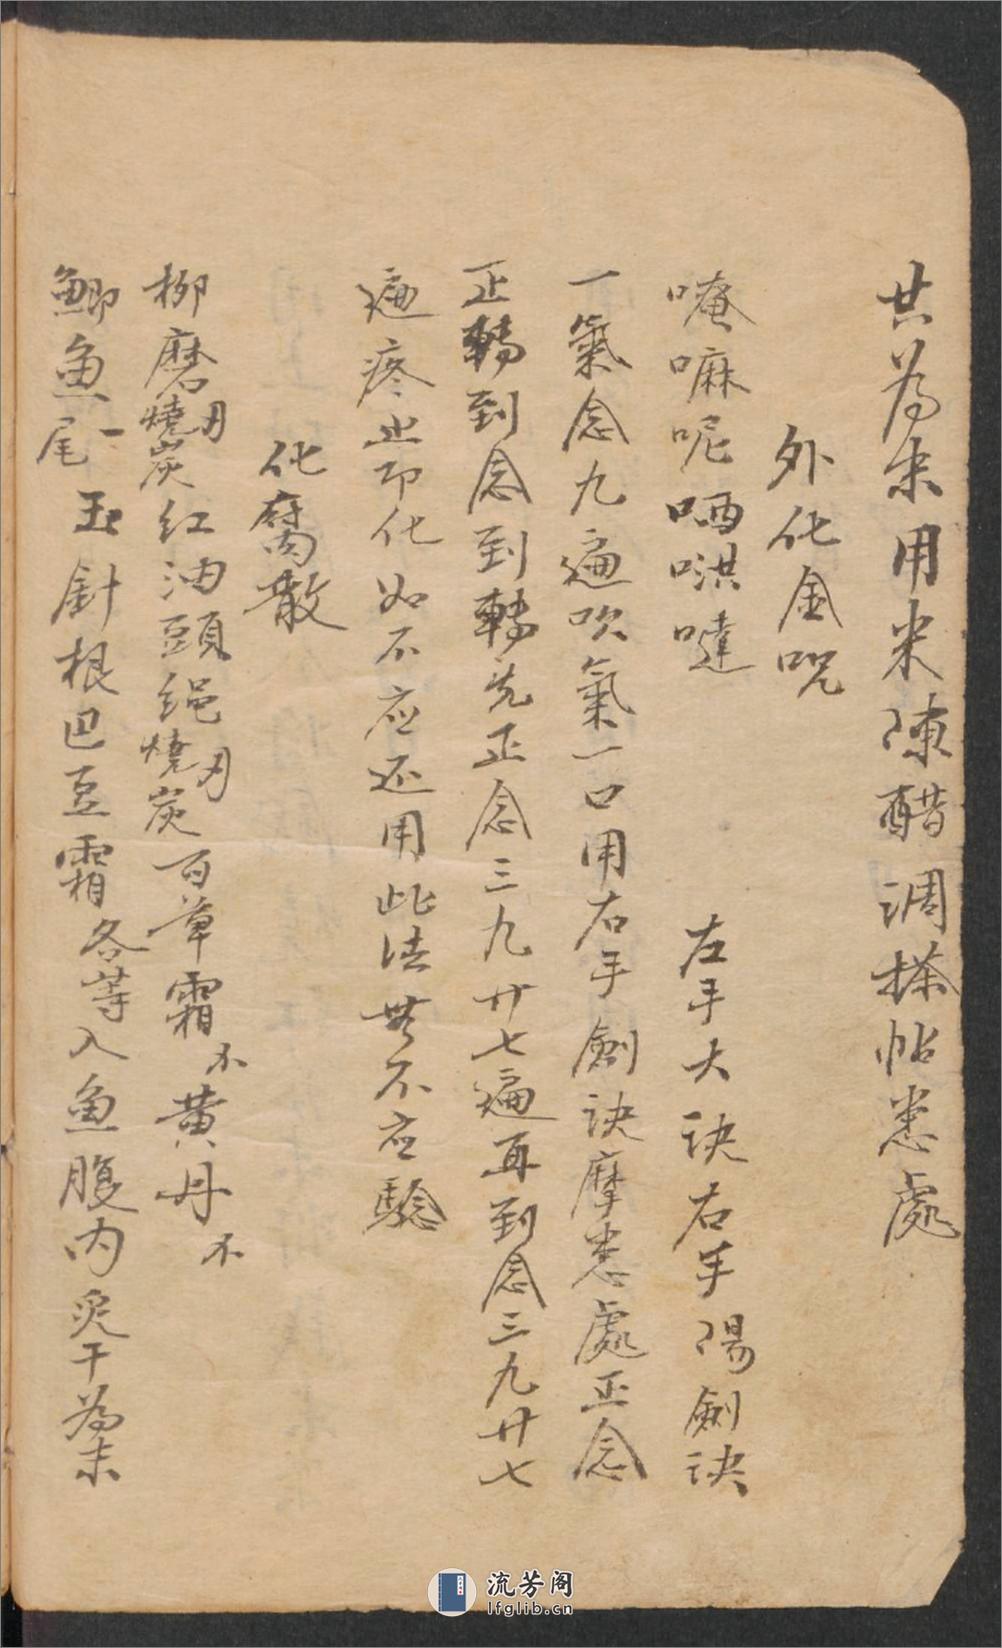 共為末用米陳醋調搽帖患處
外化金呪
唵嘛呢哂哄噠 左手大訣右手陽劍訣
一氣念九遍吹氣一口用右手劍訣摩患處正念
正轉到念到轉先正念三九廿七遍再到念三九廿七
遍疼止即化如不应还用此法無不应驗
化腐散
柳磨燒炭红油頭绳燒炭百草霜 黄丹
鯽魚一尾 玉針根巴豆霜各等入魚腹内炙干為末
流芳阁
lfglib.cn